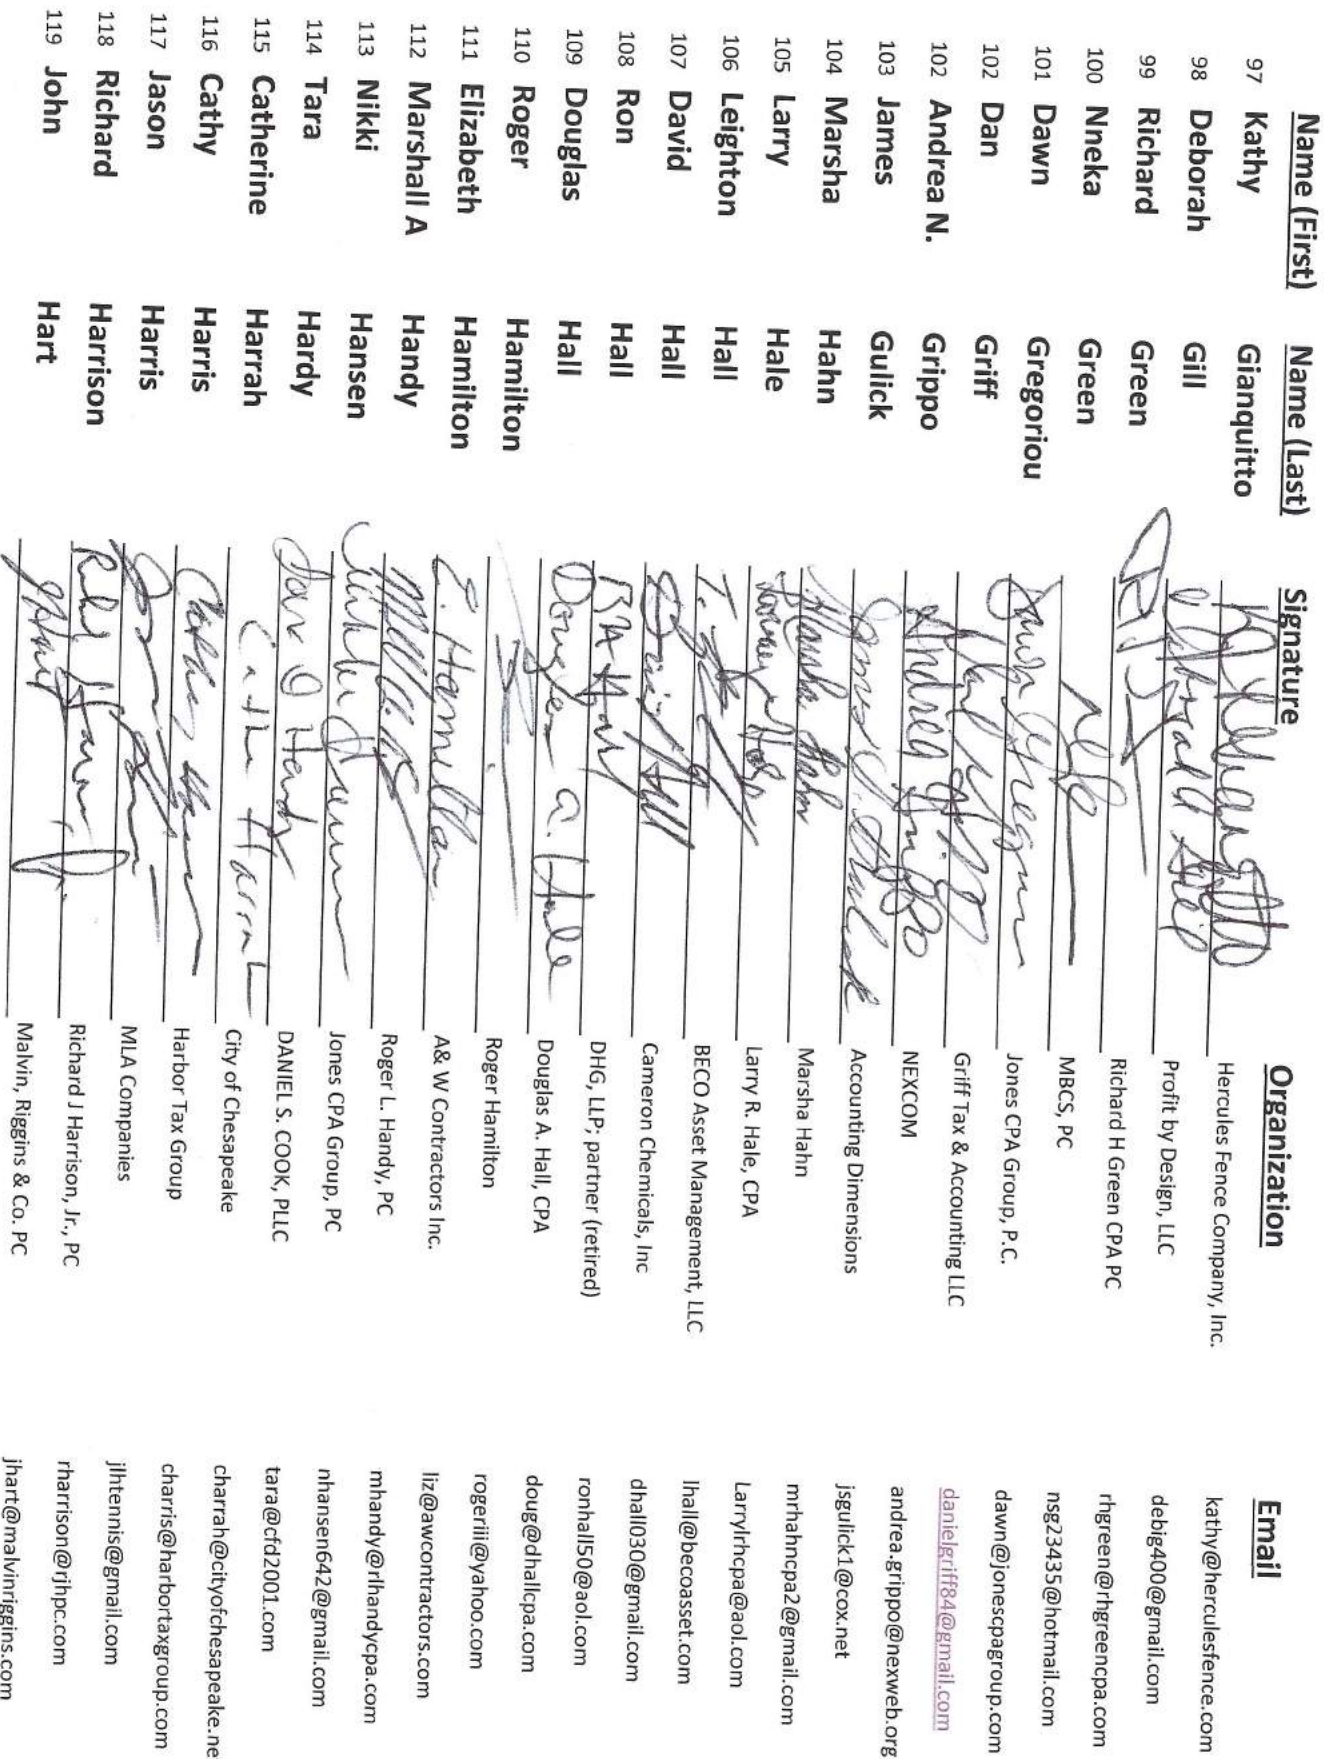 Name (First) Name (Last) Signature Organization Email
97 Kathy Gianquitto Hercules Fence Company, Inc. kathy@herculesfence.com
98 Deborah Gill Deborah Gill Profit by Design, LLC debig400@gmail.com
99 Richard Green Richard H Green CPA PC rhgreen@rhgreencpa.com
100 Nneka Green MBCS, PC nsg23435@hotmail.com
101 Dawn Gregoriou Dawn Gregoriou Jones CPA Group, P.C. dawn@jonescpagroup.com
102 Dan Griff Griff Tax & Accounting LLC danielgriff84@gmail.com
102 Andrea N. Grippo Andrea Grippo NEXCOM andrea.grippo@nexweb.org
103 James Gulick James J. Gulick Accounting Dimensions jsgulick1@cox.net
104 Marsha Hahn Marsha Hahn Marsha Hahn mrhahncpa2@gmail.com
105 Larry Hale Larry Hale Larry R. Hale, CPA Larrylrhcpa@aol.com
106 Leighton Hall BECO Asset Management, LLC lhall@becoasset.com
107 David Hall Cameron Chemicals, Inc dhall030@gmail.com
108 Ron Hall DHG, LLP; partner (retired) ronhall50@aol.com
109 Douglas Hall Douglas A. Hall Douglas A. Hall, CPA doug@dhallcpa.com
110 Roger Hamilton Roger Hamilton rogeriii@yahoo.com
111 Elizabeth Hamilton E. Hamilton A& W Contractors Inc. liz@awcontractors.com
112 Marshall A Handy Roger L. Handy, PC mhandy@rlhandycpa.com
113 Nikki Hansen Jones CPA Group, PC nhansen642@gmail.com
114 Tara Hardy Tara D Hardy DANIEL S. COOK, PLLC tara@cfd2001.com
115 Catherine Harrah Cathe Harrah City of Chesapeake charrah@cityofchesapeake.ne
116 Cathy Harris Cathy Harris Harbor Tax Group charris@harbortaxgroup.com
117 Jason Harris MLA Companies jlhtennis@gmail.com
118 Richard Harrison Richard J Harrison, Jr., PC rharrison@rjhpc.com
119 John Hart Malvin, Riggins & Co. PC jhart@malvinriggins.com